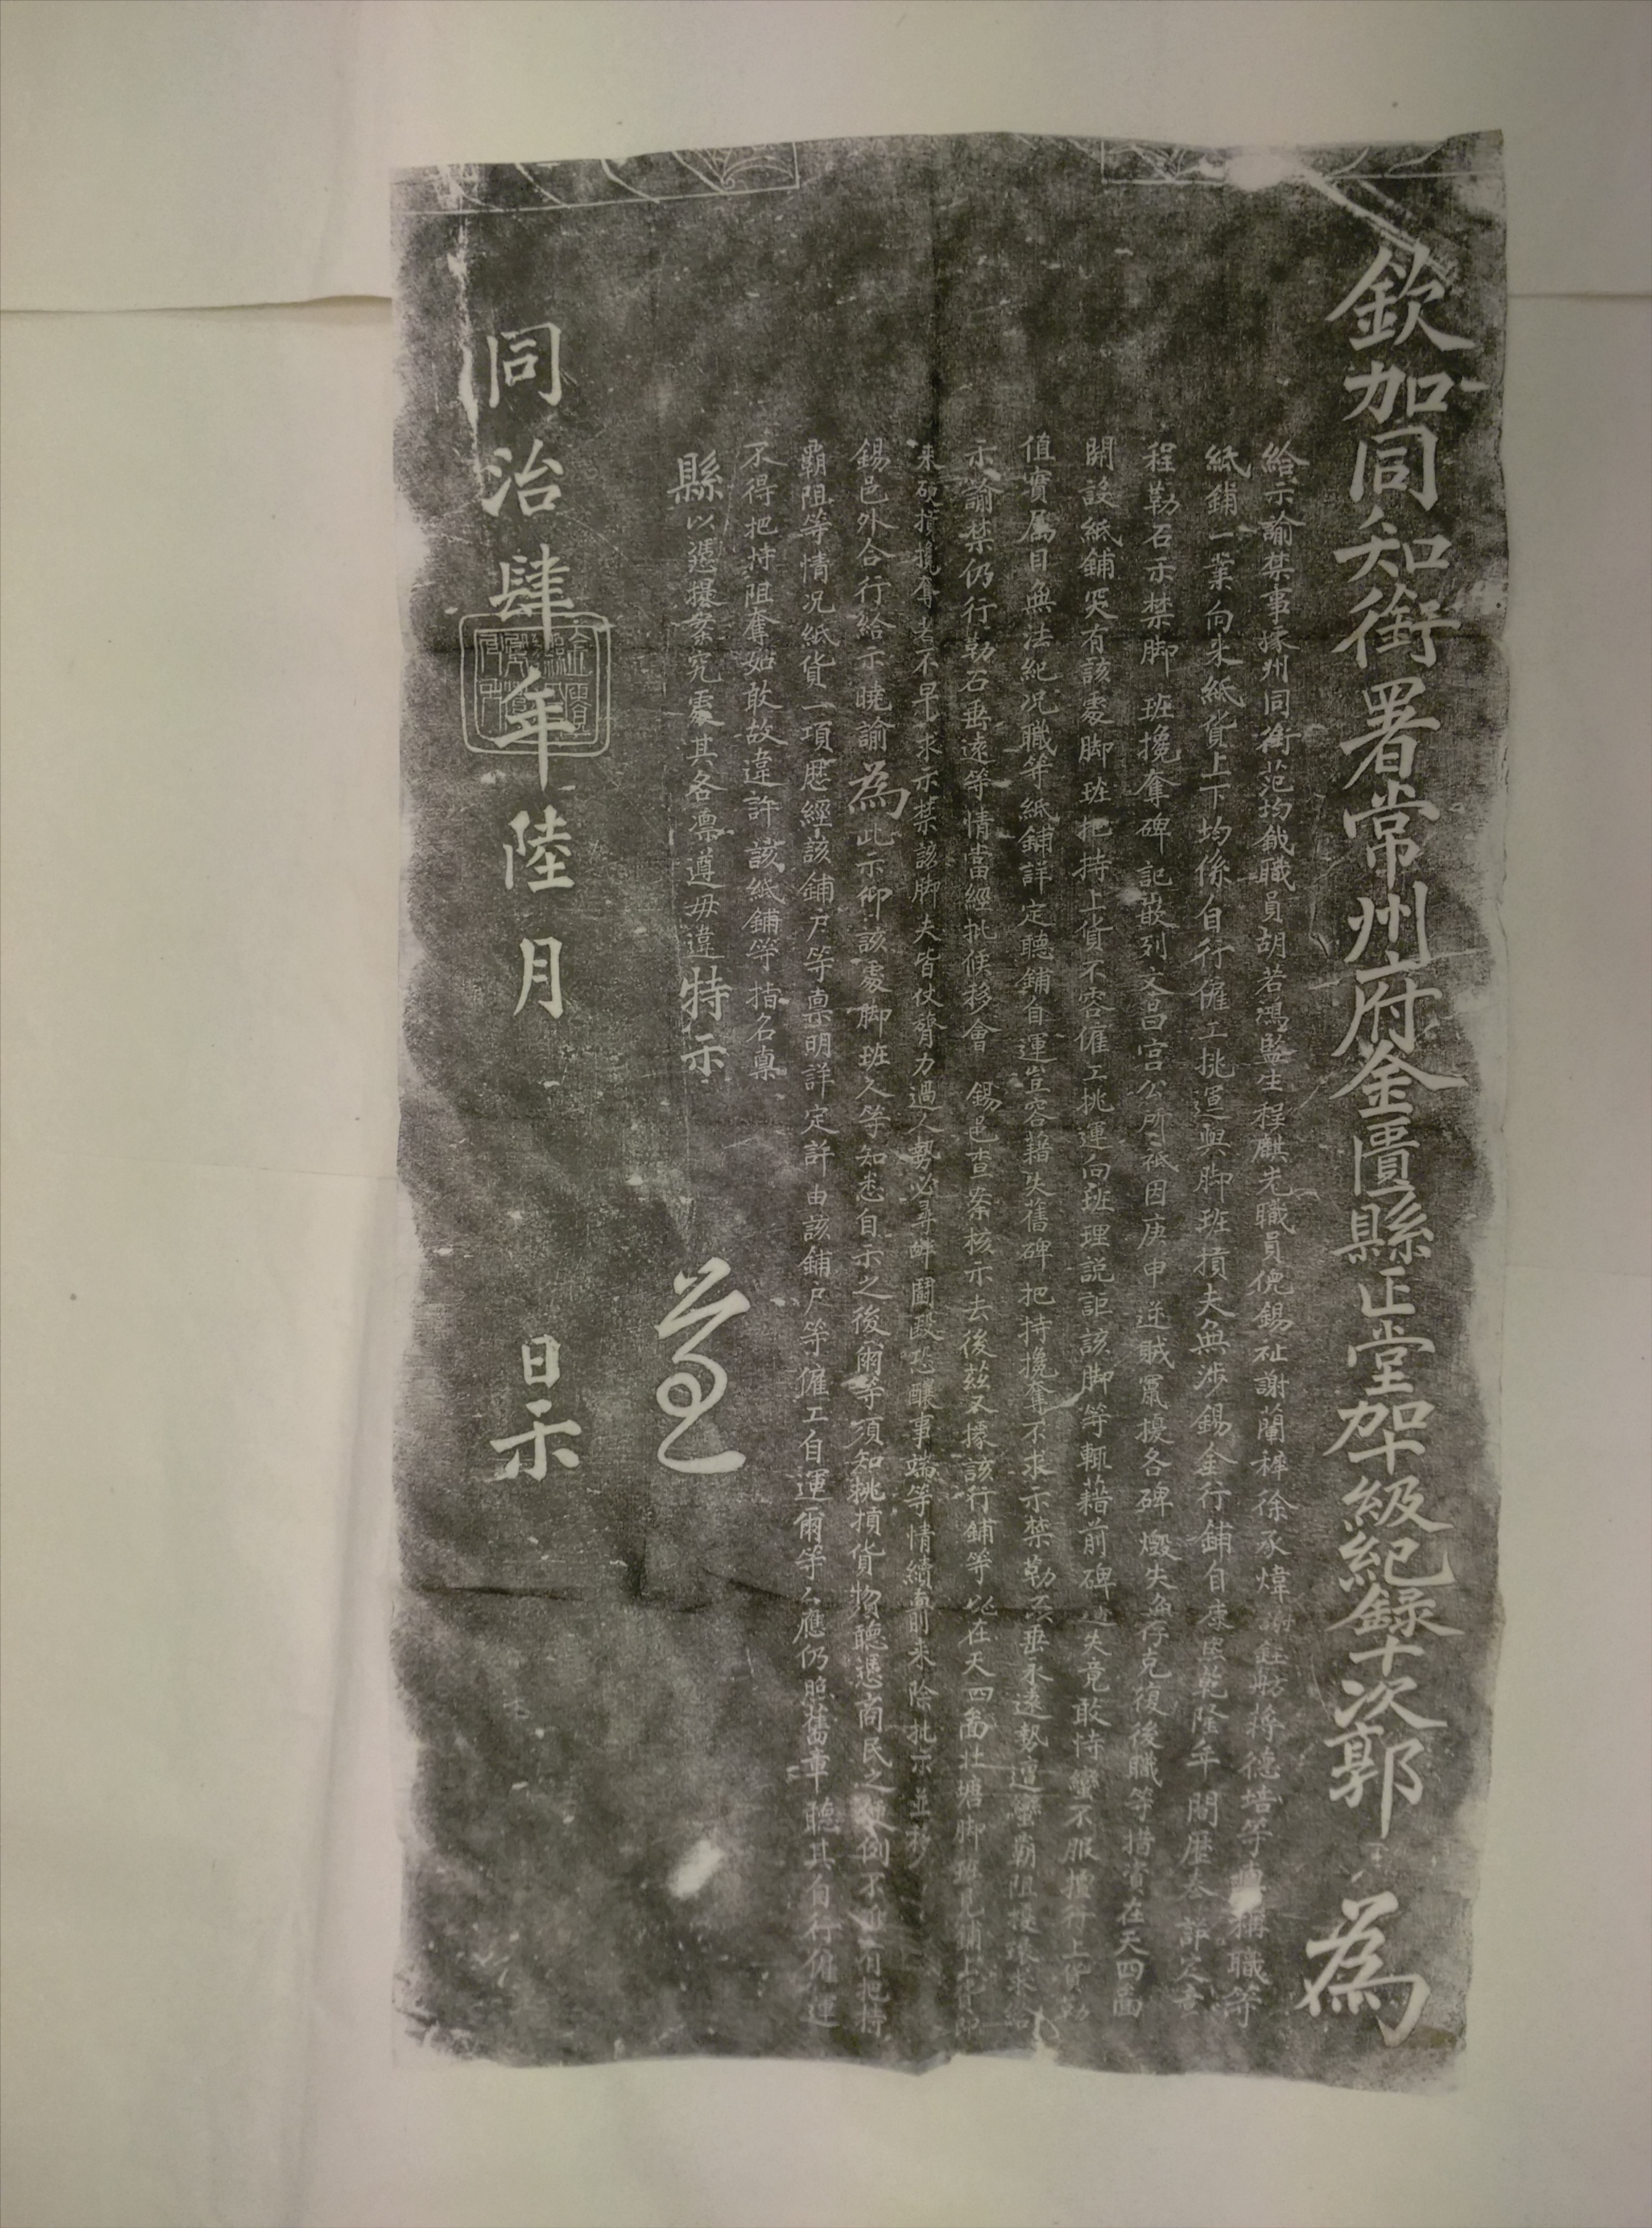 欽加同知銜署常州府金匱縣正堂加十級紀錄十次郭 為
給示諭禁事據州同銜范均鉞職員胡若鴻監生程麒光職員倪錫祉謝蘭梓徐承煒謝鈺舫蔣德培等稟稱職等
紙鋪一業向來紙貨上下均係自行僱工挑運與脚班摃夫無涉錫金行鋪自康熙乾隆年間歷叁詳定章
程勒石示禁脚班攙奪碑記嵌列文昌宮公所祗因庚申逆賊竄擾各碑燬失無存克復後職等措資在天四啚
開設紙鋪突有該處脚班把持上貨不容僱工挑運向班理説詎該脚等輒藉前碑遺失竟敢恃蠻不服擅行上貨勒
值實屬目無法紀况職等紙鋪詳定聽鋪自運豈容藉失舊碑把持攙奪不求示禁勒石垂永遠勢逞蠻霸阻擾環求給
示諭禁仍行勒石垂遠等情當經批候移會 錫邑查案核示去後茲又據該行鋪等以在天四啚壯塘脚班見鋪上貨即
來硬摃攙奪若不早求示禁該脚夫皆仗膂力過人勢必尋衅鬬毆恐釀事端等情續前來除批示並移
錫邑外合行給示曉諭為此示仰該處脚班人等知悉自示之後爾等須知挑摃貨物聽憑商民之便例不准有把持
霸阻等情况紙貨一項歷經該鋪戶等稟明詳定詳由該鋪戶等僱工自運爾等人應仍照舊章聽其自行僱運
不得把持阻奪如敢故違許該紙鋪等指名稟
縣以憑提案究處其各凛遵毋違特示
遵
同治肆年陸月 日示